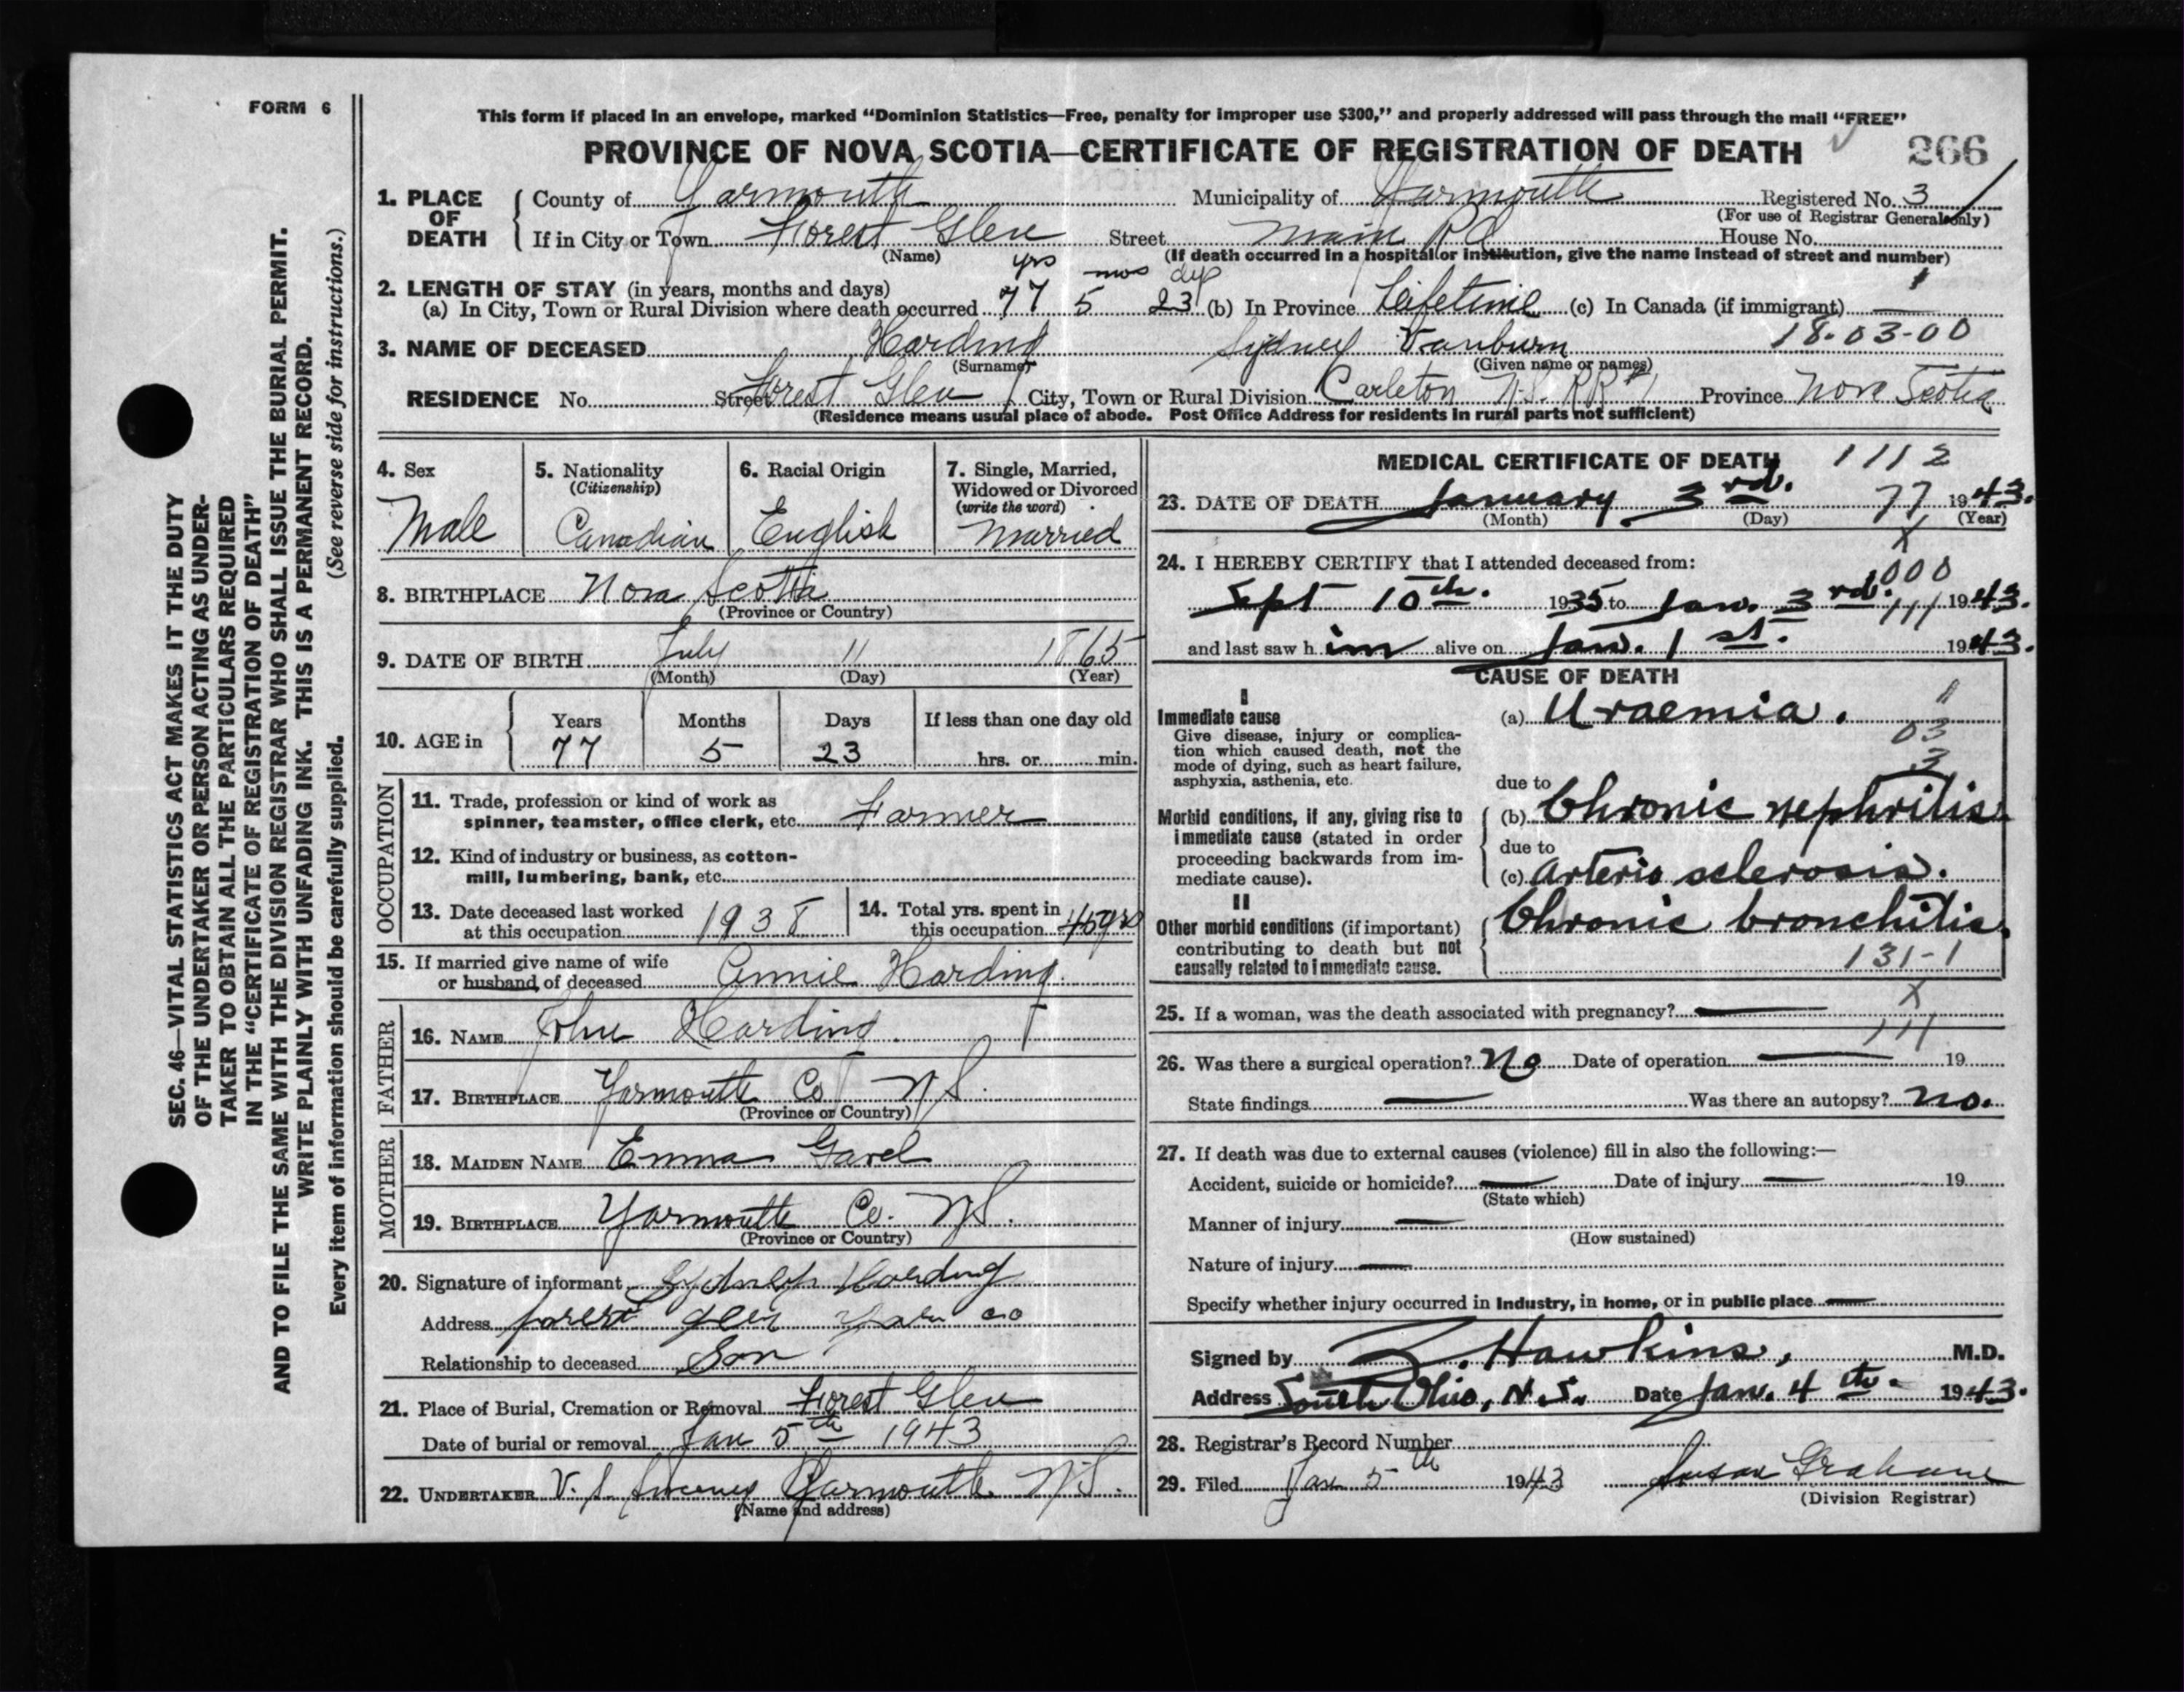 FORM 6
This form if placed in an envelope, marked “Dominion Statistics—Free, penalty for improper use $300,” and properly addressed will pass through the mail “FREE”
PROVINCE OF NOVA SCOTIA—CERTIFICATE OF REGISTRATION OF DEATH 266
1. PLACE OF DEATH
County of Yarmouth Municipality of Yarmouth Registered No. 3
(For use of Registrar General only)
If in City or Town Forest Glen Street Main Rd House No.
(Name) (If death occurred in a hospital or institution, give the name instead of street and number)
yrs mos dys
2. LENGTH OF STAY (in years, months and days)
(a) In City, Town or Rural Division where death occurred 77 5 23 (b) In Province Lifetime (c) In Canada (if immigrant) —
18-03-00
3. NAME OF DECEASED Harding Sydney Vanburn
(Surname) (Given name or names)
RESIDENCE No. Street Forest Glen City, Town or Rural Division Carleton N.S. RR #1 Province Nova Scotia
(Residence means usual place of abode. Post Office Address for residents in rural parts not sufficient)
4. Sex Male
5. Nationality (Citizenship) Canadian
6. Racial Origin English
7. Single, Married, Widowed or Divorced (write the word) Married
8. BIRTHPLACE Nova Scotia
(Province or Country)
9. DATE OF BIRTH July 11 1865
(Month) (Day) (Year)
10. AGE in Years Months Days If less than one day old
77 5 23 hrs. or min.
OCCUPATION
11. Trade, profession or kind of work as
spinner, teamster, office clerk, etc. Farmer
12. Kind of industry or business, as cotton-
mill, lumbering, bank, etc.
13. Date deceased last worked
at this occupation 1938
14. Total yrs. spent in
this occupation yrs
15. If married give name of wife
or husband of deceased Annie Harding
FATHER
16. NAME John Harding
17. BIRTHPLACE Yarmouth Co N.S.
(Province or Country)
MOTHER
18. MAIDEN NAME Emma Gavel
19. BIRTHPLACE Yarmouth Co. N.S.
(Province or Country)
20. Signature of informant Sydney Harding
Address forest glen Yar co
Relationship to deceased Son
21. Place of Burial, Cremation or Removal Forest Glen
Date of burial or removal Jan 5th 1943
22. UNDERTAKER V. S. Sweeney Yarmouth N.S.
(Name and address)
MEDICAL CERTIFICATE OF DEATH 1112
23. DATE OF DEATH January 3rd. 77 1943.
(Month) (Day) (Year)
X
24. I HEREBY CERTIFY that I attended deceased from:
000
Sept 10th. 1935 to Jan. 3rd. 111 1943.
and last saw him alive on Jan. 1st. 1943.
CAUSE OF DEATH
I
Immediate cause
Give disease, injury or complica-
tion which caused death, not the
mode of dying, such as heart failure,
asphyxia, asthenia, etc.
(a) Uraemia.
03
3
due to
Morbid conditions, if any, giving rise to
immediate cause (stated in order
proceeding backwards from im-
mediate cause).
(b) Chronic nephritis.
due to
(c) Arterio sclerosis.
II
Other morbid conditions (if important)
contributing to death but not
causally related to immediate cause.
Chronic bronchitis.
131-1
X
25. If a woman, was the death associated with pregnancy? —
111
26. Was there a surgical operation? No Date of operation — 19
State findings — Was there an autopsy? No.
27. If death was due to external causes (violence) fill in also the following:—
Accident, suicide or homicide? — Date of injury — 19
(State which)
Manner of injury —
(How sustained)
Nature of injury —
Specify whether injury occurred in Industry, in home, or in public place —
Signed by Z. Hawkins, M.D.
Address South Ohio, N.S. Date Jan. 4th. 1943.
28. Registrar's Record Number
29. Filed Jan 5th 1943 Susan Grahame
(Division Registrar)
SEC. 46—VITAL STATISTICS ACT MAKES IT THE DUTY
OF THE UNDERTAKER OR PERSON ACTING AS UNDER-
TAKER TO OBTAIN ALL THE PARTICULARS REQUIRED
IN THE “CERTIFICATE OF REGISTRATION OF DEATH”
AND TO FILE THE SAME WITH THE DIVISION REGISTRAR WHO SHALL ISSUE THE BURIAL PERMIT.
WRITE PLAINLY WITH UNFADING INK. THIS IS A PERMANENT RECORD.
Every item of information should be carefully supplied. (See reverse side for instructions.)